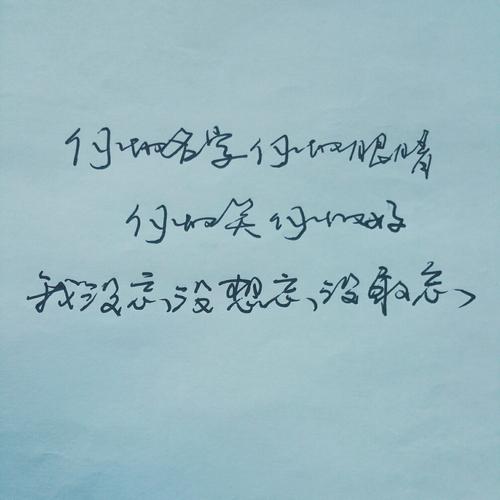 你的名字你的眼睛
你的笑你的好
我没忘,没想忘,没敢忘、